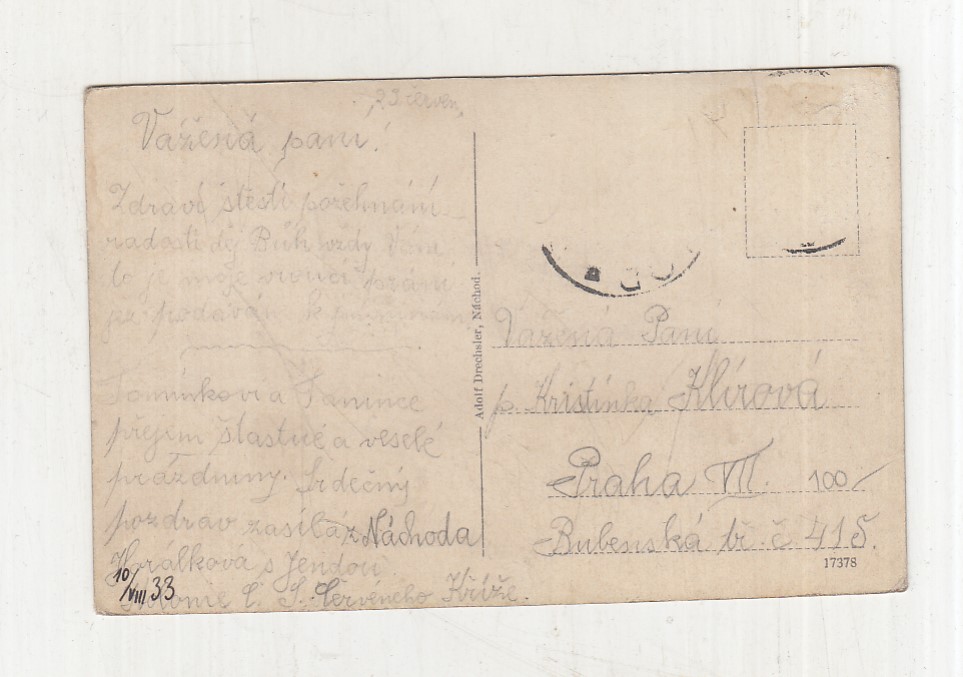 23 červen
Vážená paní!
Zdraví štěstí požehnání
radosti dej Bůh vždy Vám
to je moje vroucí přání
jež podávám k
Tomínkovi a Tonince
přejem šťastné a veselé
prázdniny. Srdečný
pozdrav zasílá z Náchoda
Horálková s Jendou
Kolonie Č. S. Červeného Kříže.
10/VIII 33
Adolf Drechsler, Náchod.
Vážená Paní
p. Kristínka Klírová
Praha VII. 100/
Bubenská tř. č 415.
17378